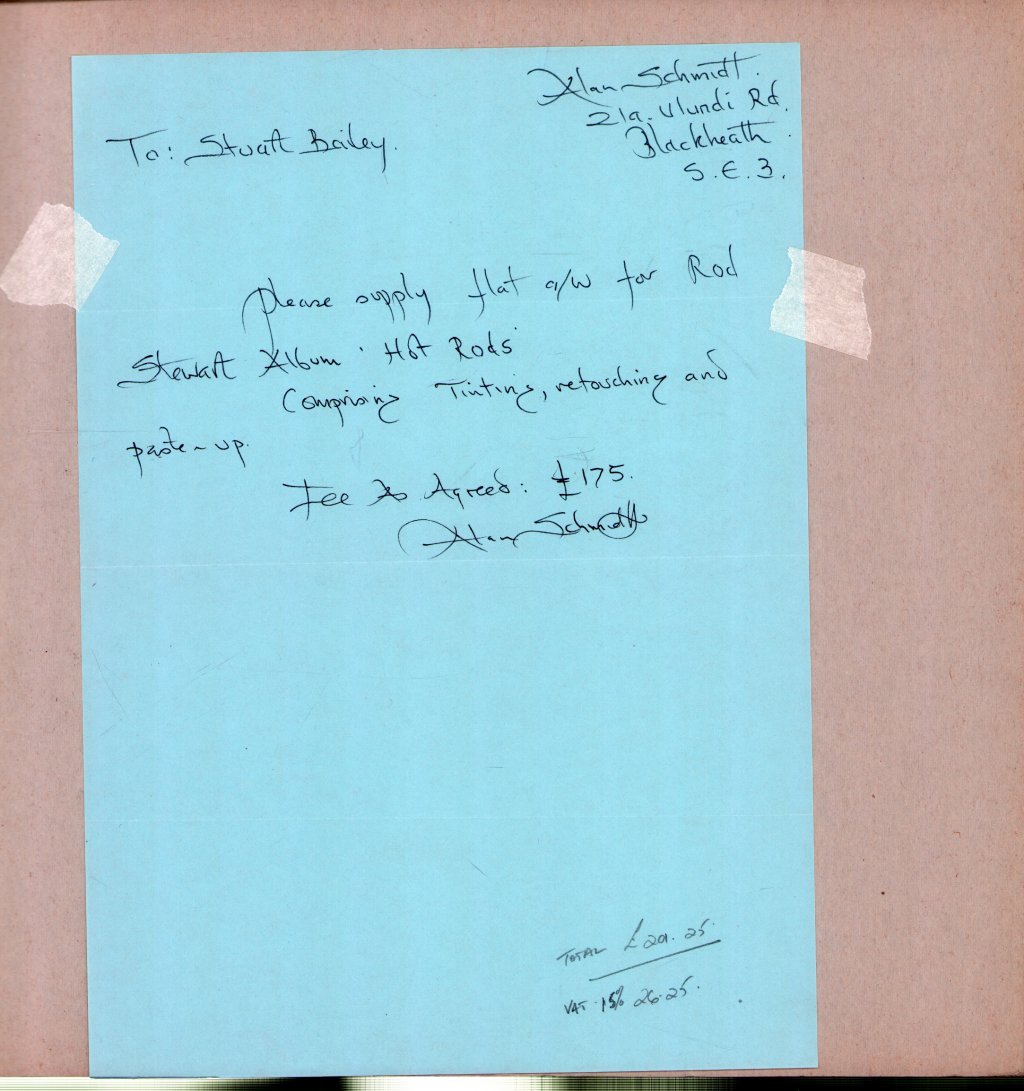 Alan Schmidt.
21a. Ulundi Rd.
Blackheath.
S.E.3.
To: Stuart Bailey.
please supply flat a/w for Rod
Stewart Album 'Hot Rods'
Comprising Tinting, retouching and
paste-up.
Fee As Agreed: £175.
Alan Schmidt
TOTAL £201.25.
VAT. 15% 26.25.